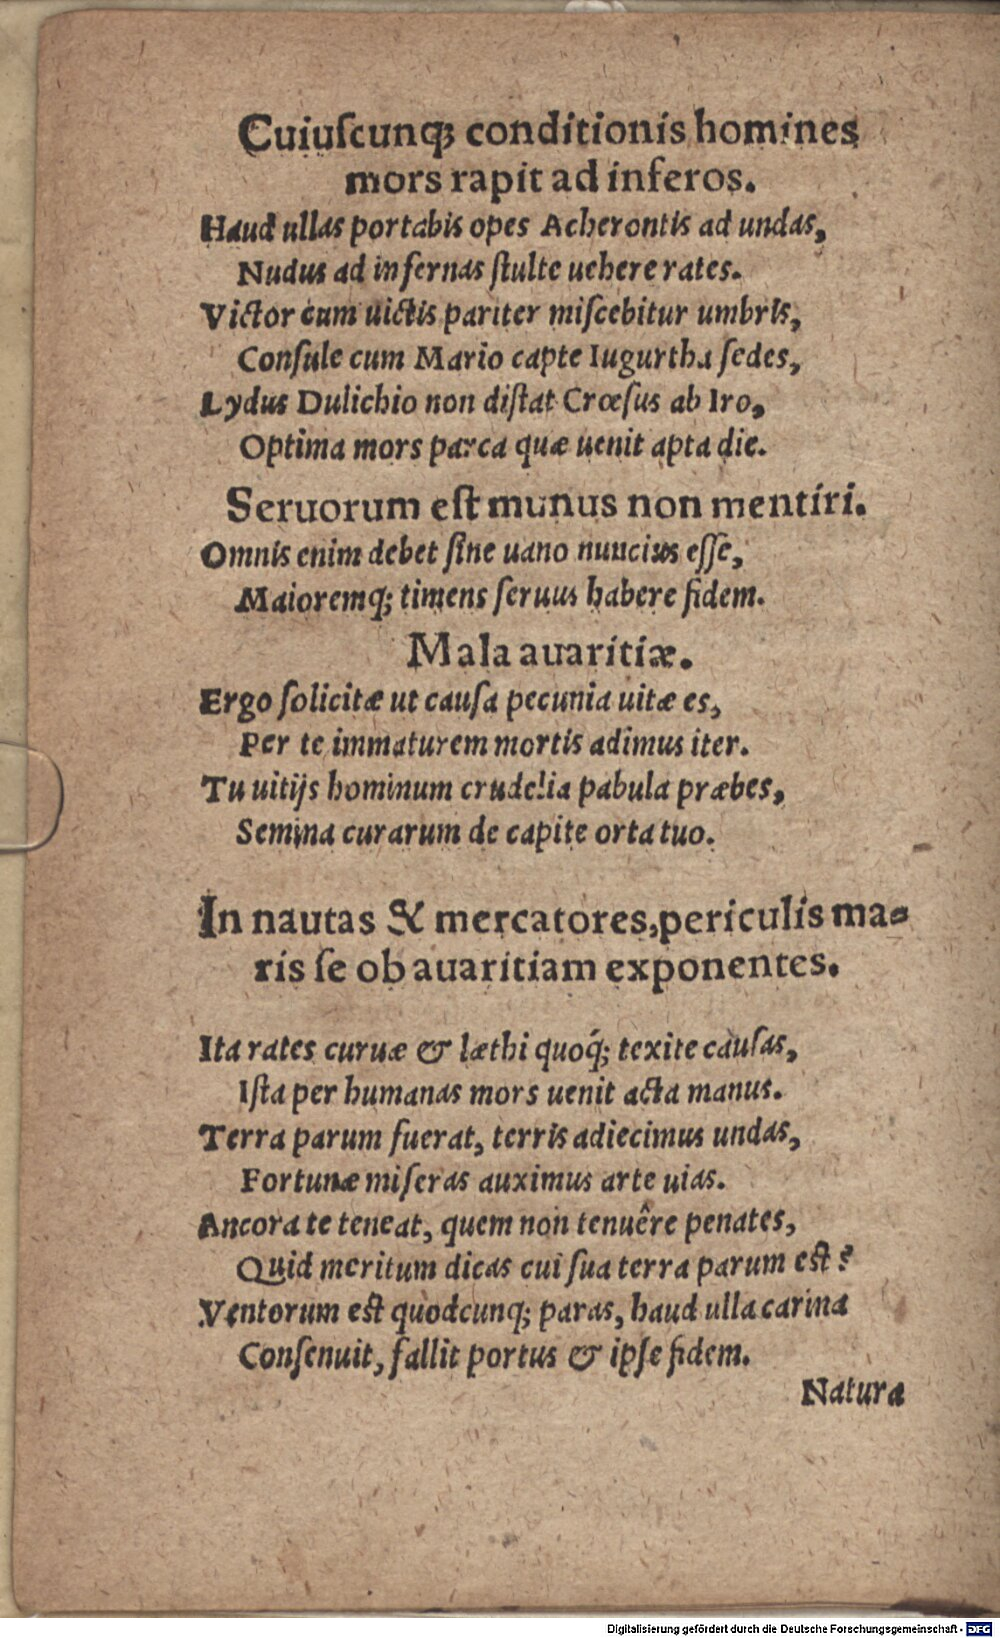 Cuiuſcunq; conditionis homines
mors rapit ad inferos.
Haud ullas portabis opes Acherontis ad undas,
Nudus ad infernas ſtulte uehere rates.
Victor cum uictis pariter miſcebitur umbris,
Conſule cum Mario capte Iugurtha ſedes,
Lydus Dulichio non diſtat Crœſus ab Iro,
Optima mors parca quæ uenit apta die.
Seruorum eſt munus non mentiri.
Omnis enim debet ſine uano nuncius eſſe,
Maioremq; timens ſeruus habere fidem.
Mala avaritiæ.
Ergo ſolicitæ ut cauſa pecunia uitæ es,
Per te immaturem mortis adimus iter.
Tu uitijs hominum crudelia pabula præbes,
Semina curarum de capite orta tuo.
In nautas & mercatores, periculis ma-
ris ſe ob avaritiam exponentes.
Ita rates curuæ & læthi quoq́; texite cauſas,
Iſta per humanas mors uenit acta manus.
Terra parum fuerat, terris adiecimus undas,
Fortunæ miſeras auximus arte uias.
Ancora te teneat, quem non tenuêre penates,
Quid meritum dicas cui ſua terra parum eſt?
Ventorum eſt quodcunq; paras, haud ulla carina
Conſenuit, fallit portus & ipſe fidem.
Natura
Digitalisierung gefördert durch die Deutsche Forschungsgemeinschaft - DFG